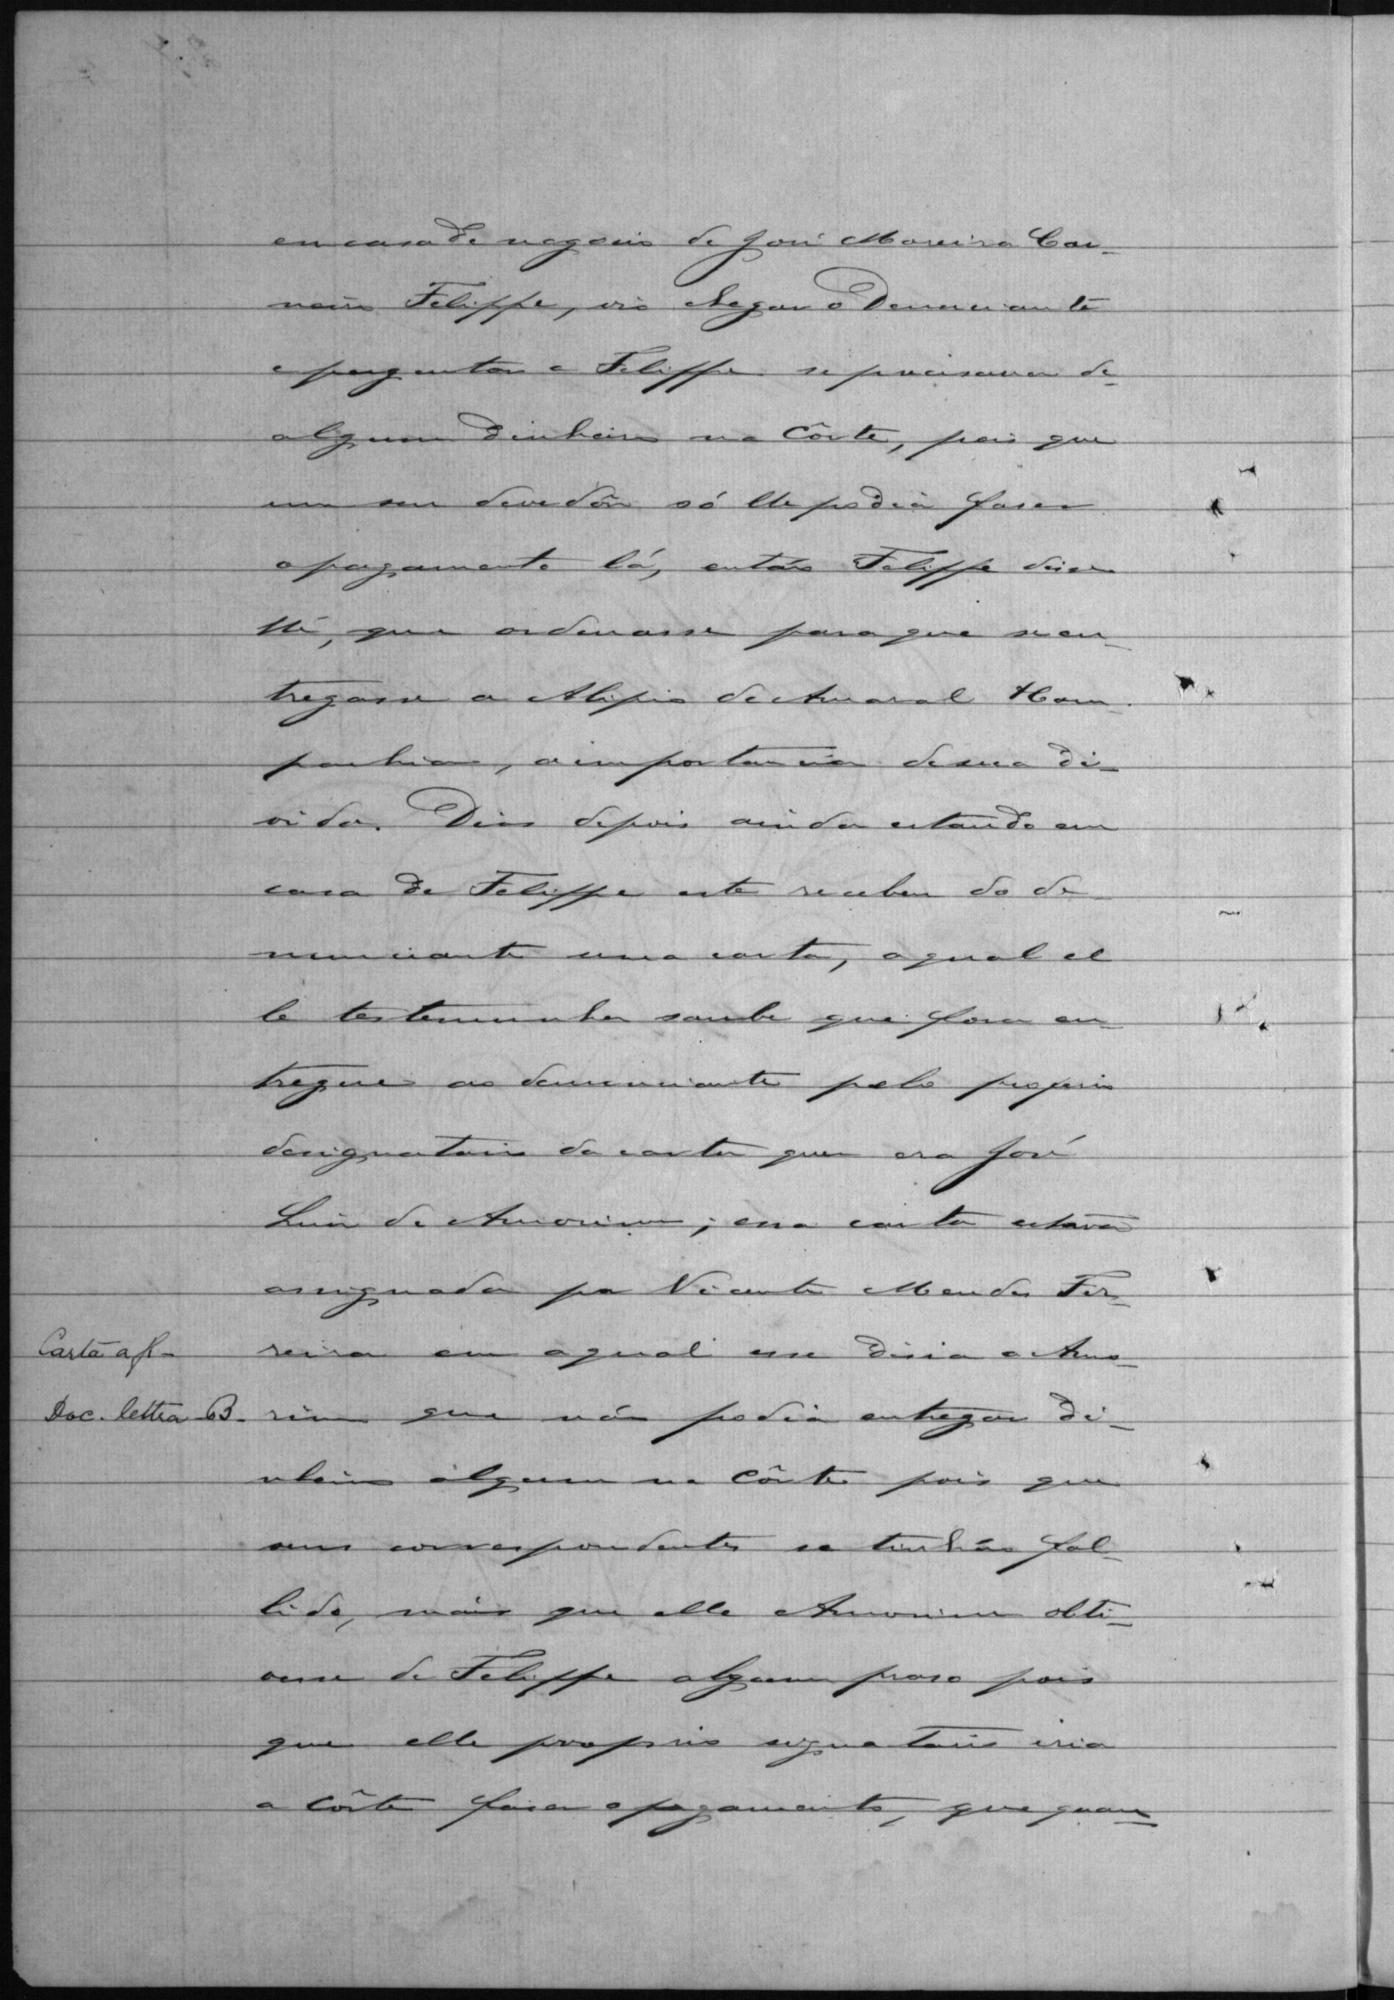 em casa de negocio de José Moreira Car-
neiro Felippe, vio chegar o Denunciante
e perguntar a Felippe se precisava de
algum dinheiro na Côrte, pois que
um seu devedôr só lhe podia faser
o pagamento lá, então Felippe disse
lhe, que ordenasse para que se en-
tregasse a Alipio de Amaral & Com-
panhia, a importancia de sua di-
vida. Dias depois ainda estando em
casa de Felippe este recebeu do de-
nunciante uma carta, a qual el
le testemunha soube que fora en-
tregue ao denunciante pelo proprio
designatario da carta que era José
Luis de Amorim; essa carta estava
assignada por Vicente Mendes Fer-
Carta a f-
reira em a qual esse disia a Amo-
Doc. lettra -B-
rim que não podia entregar di-
nheiro algum na Côrte pois que
seus correspondentes se tinhão fal-
lido, mais que elle Amorim obti-
vesse de Felippe algum praso pois
que elle proprio signatario iria
a Côrte faser o pagamento, que quan-